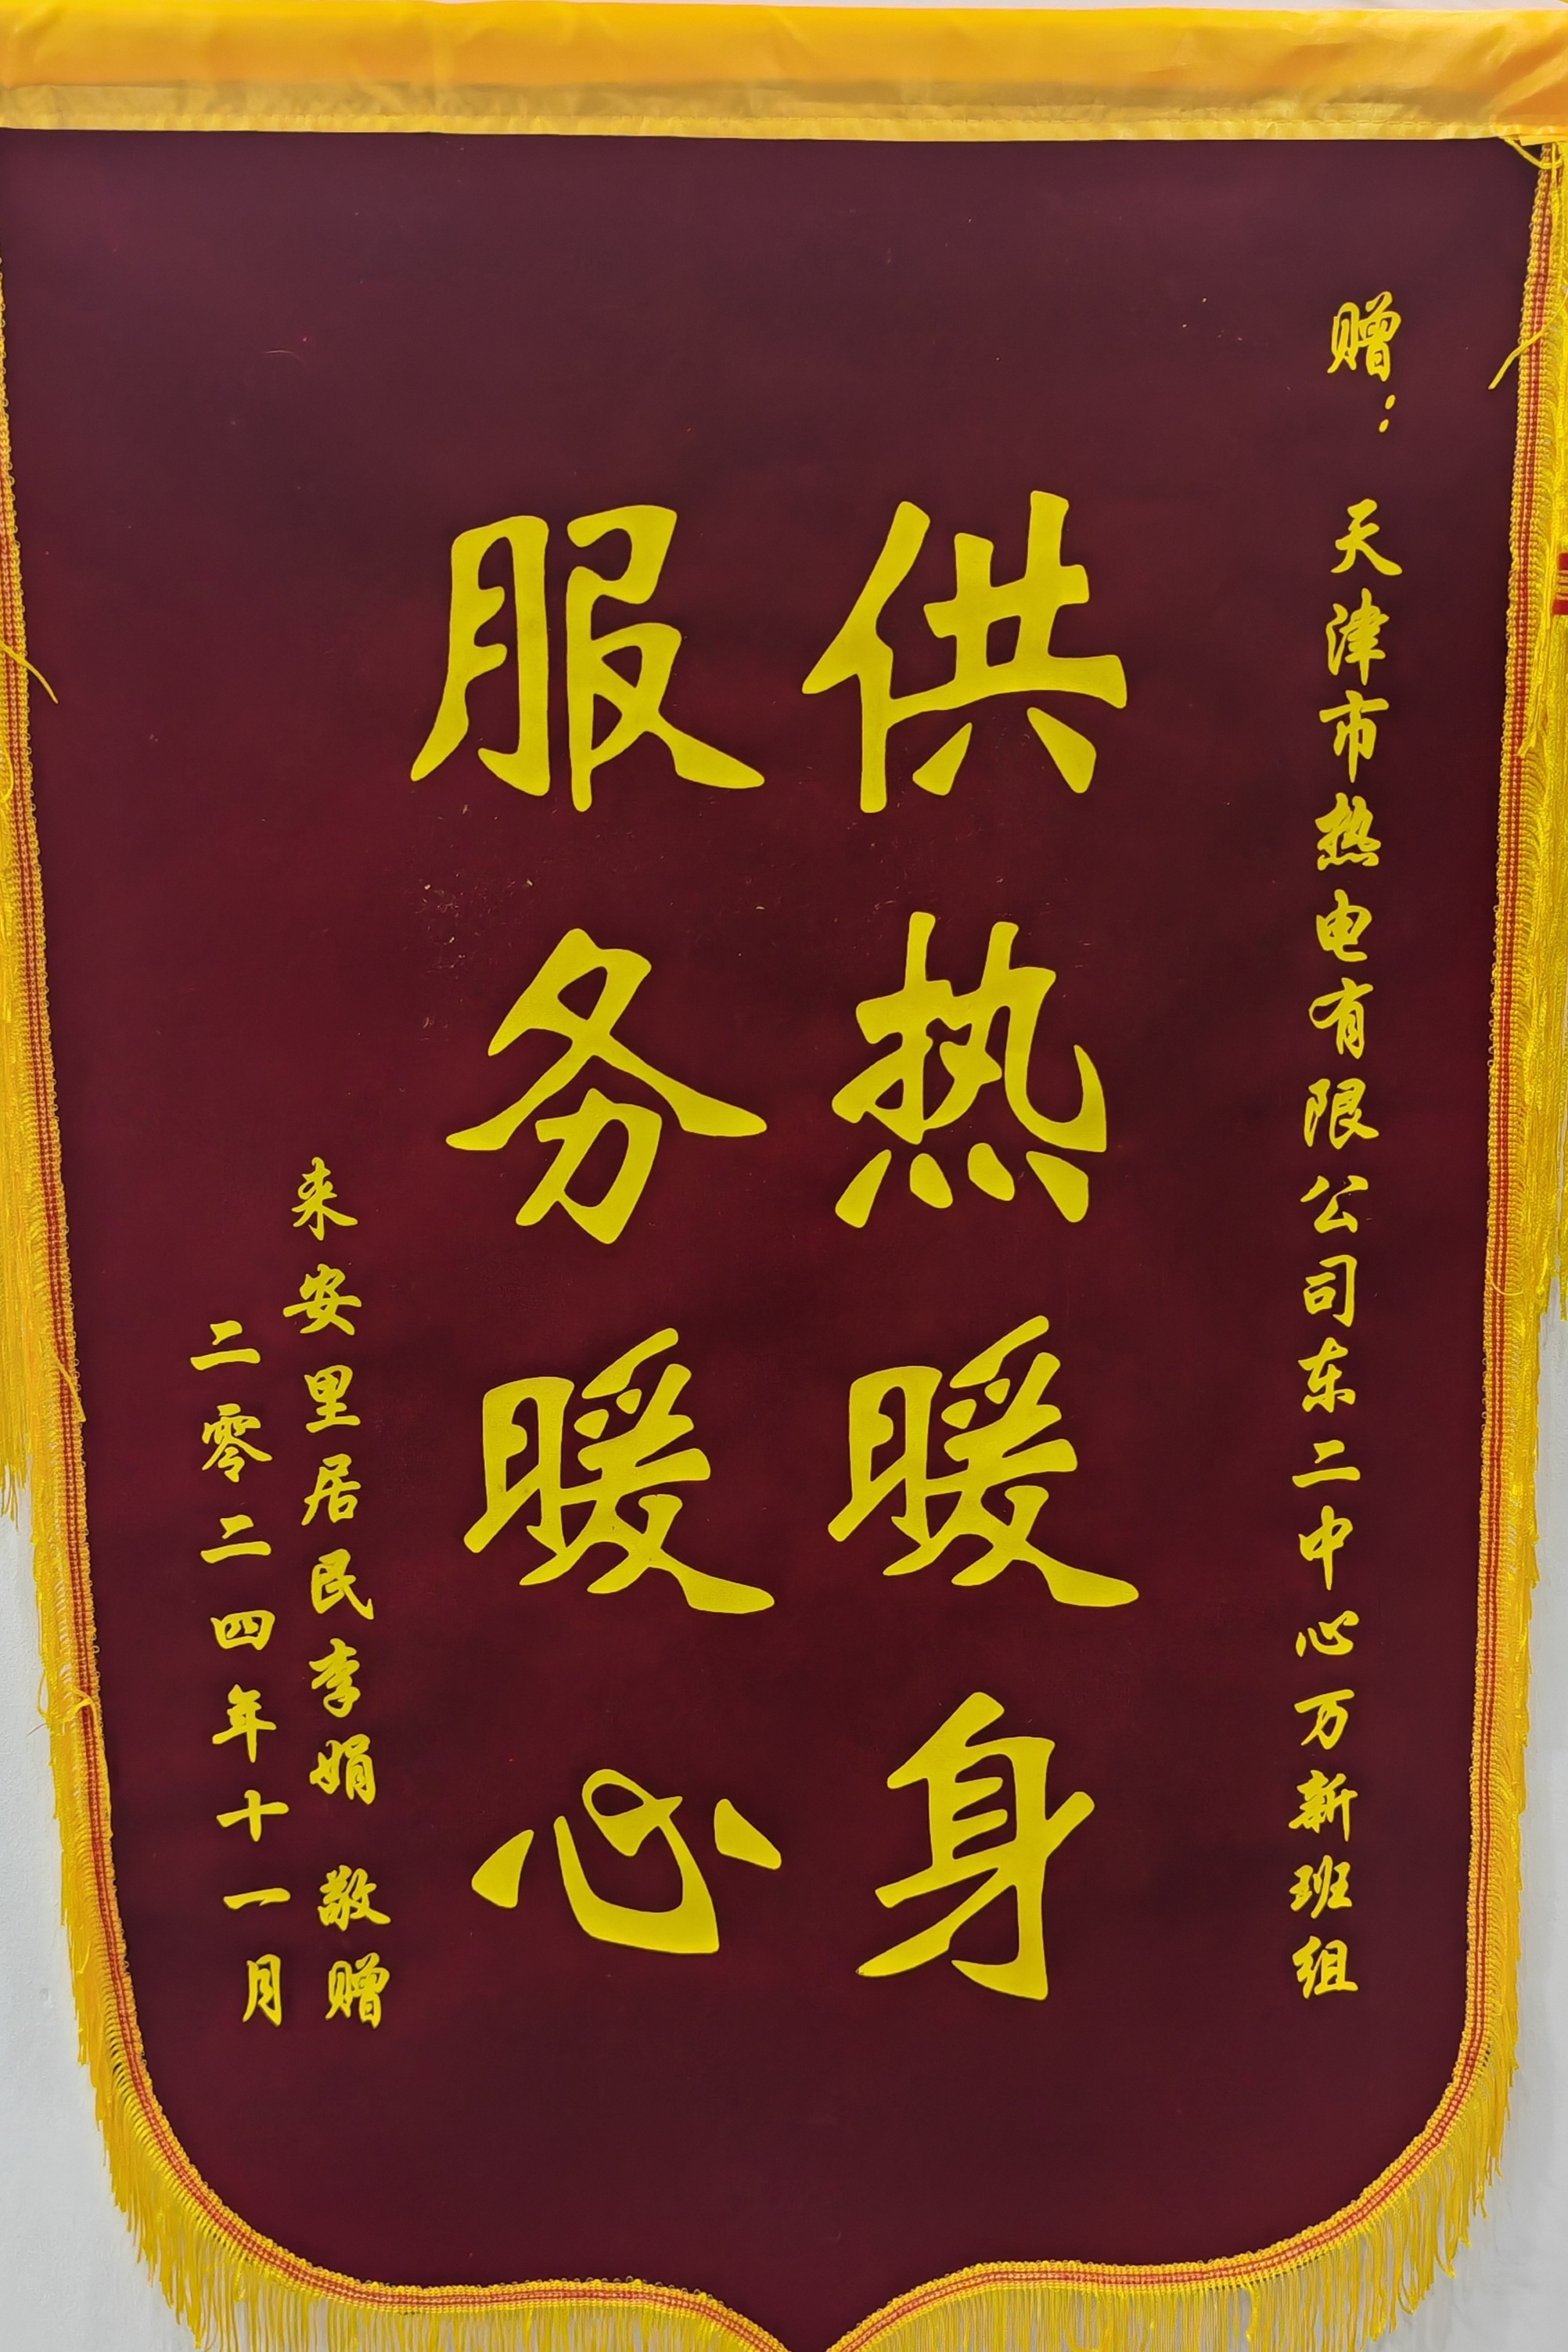 赠：天津市热电有限公司东二中心万新班组
供热暖身
服务暖心
来安里居民李娟 敬赠
二零二四年十一月